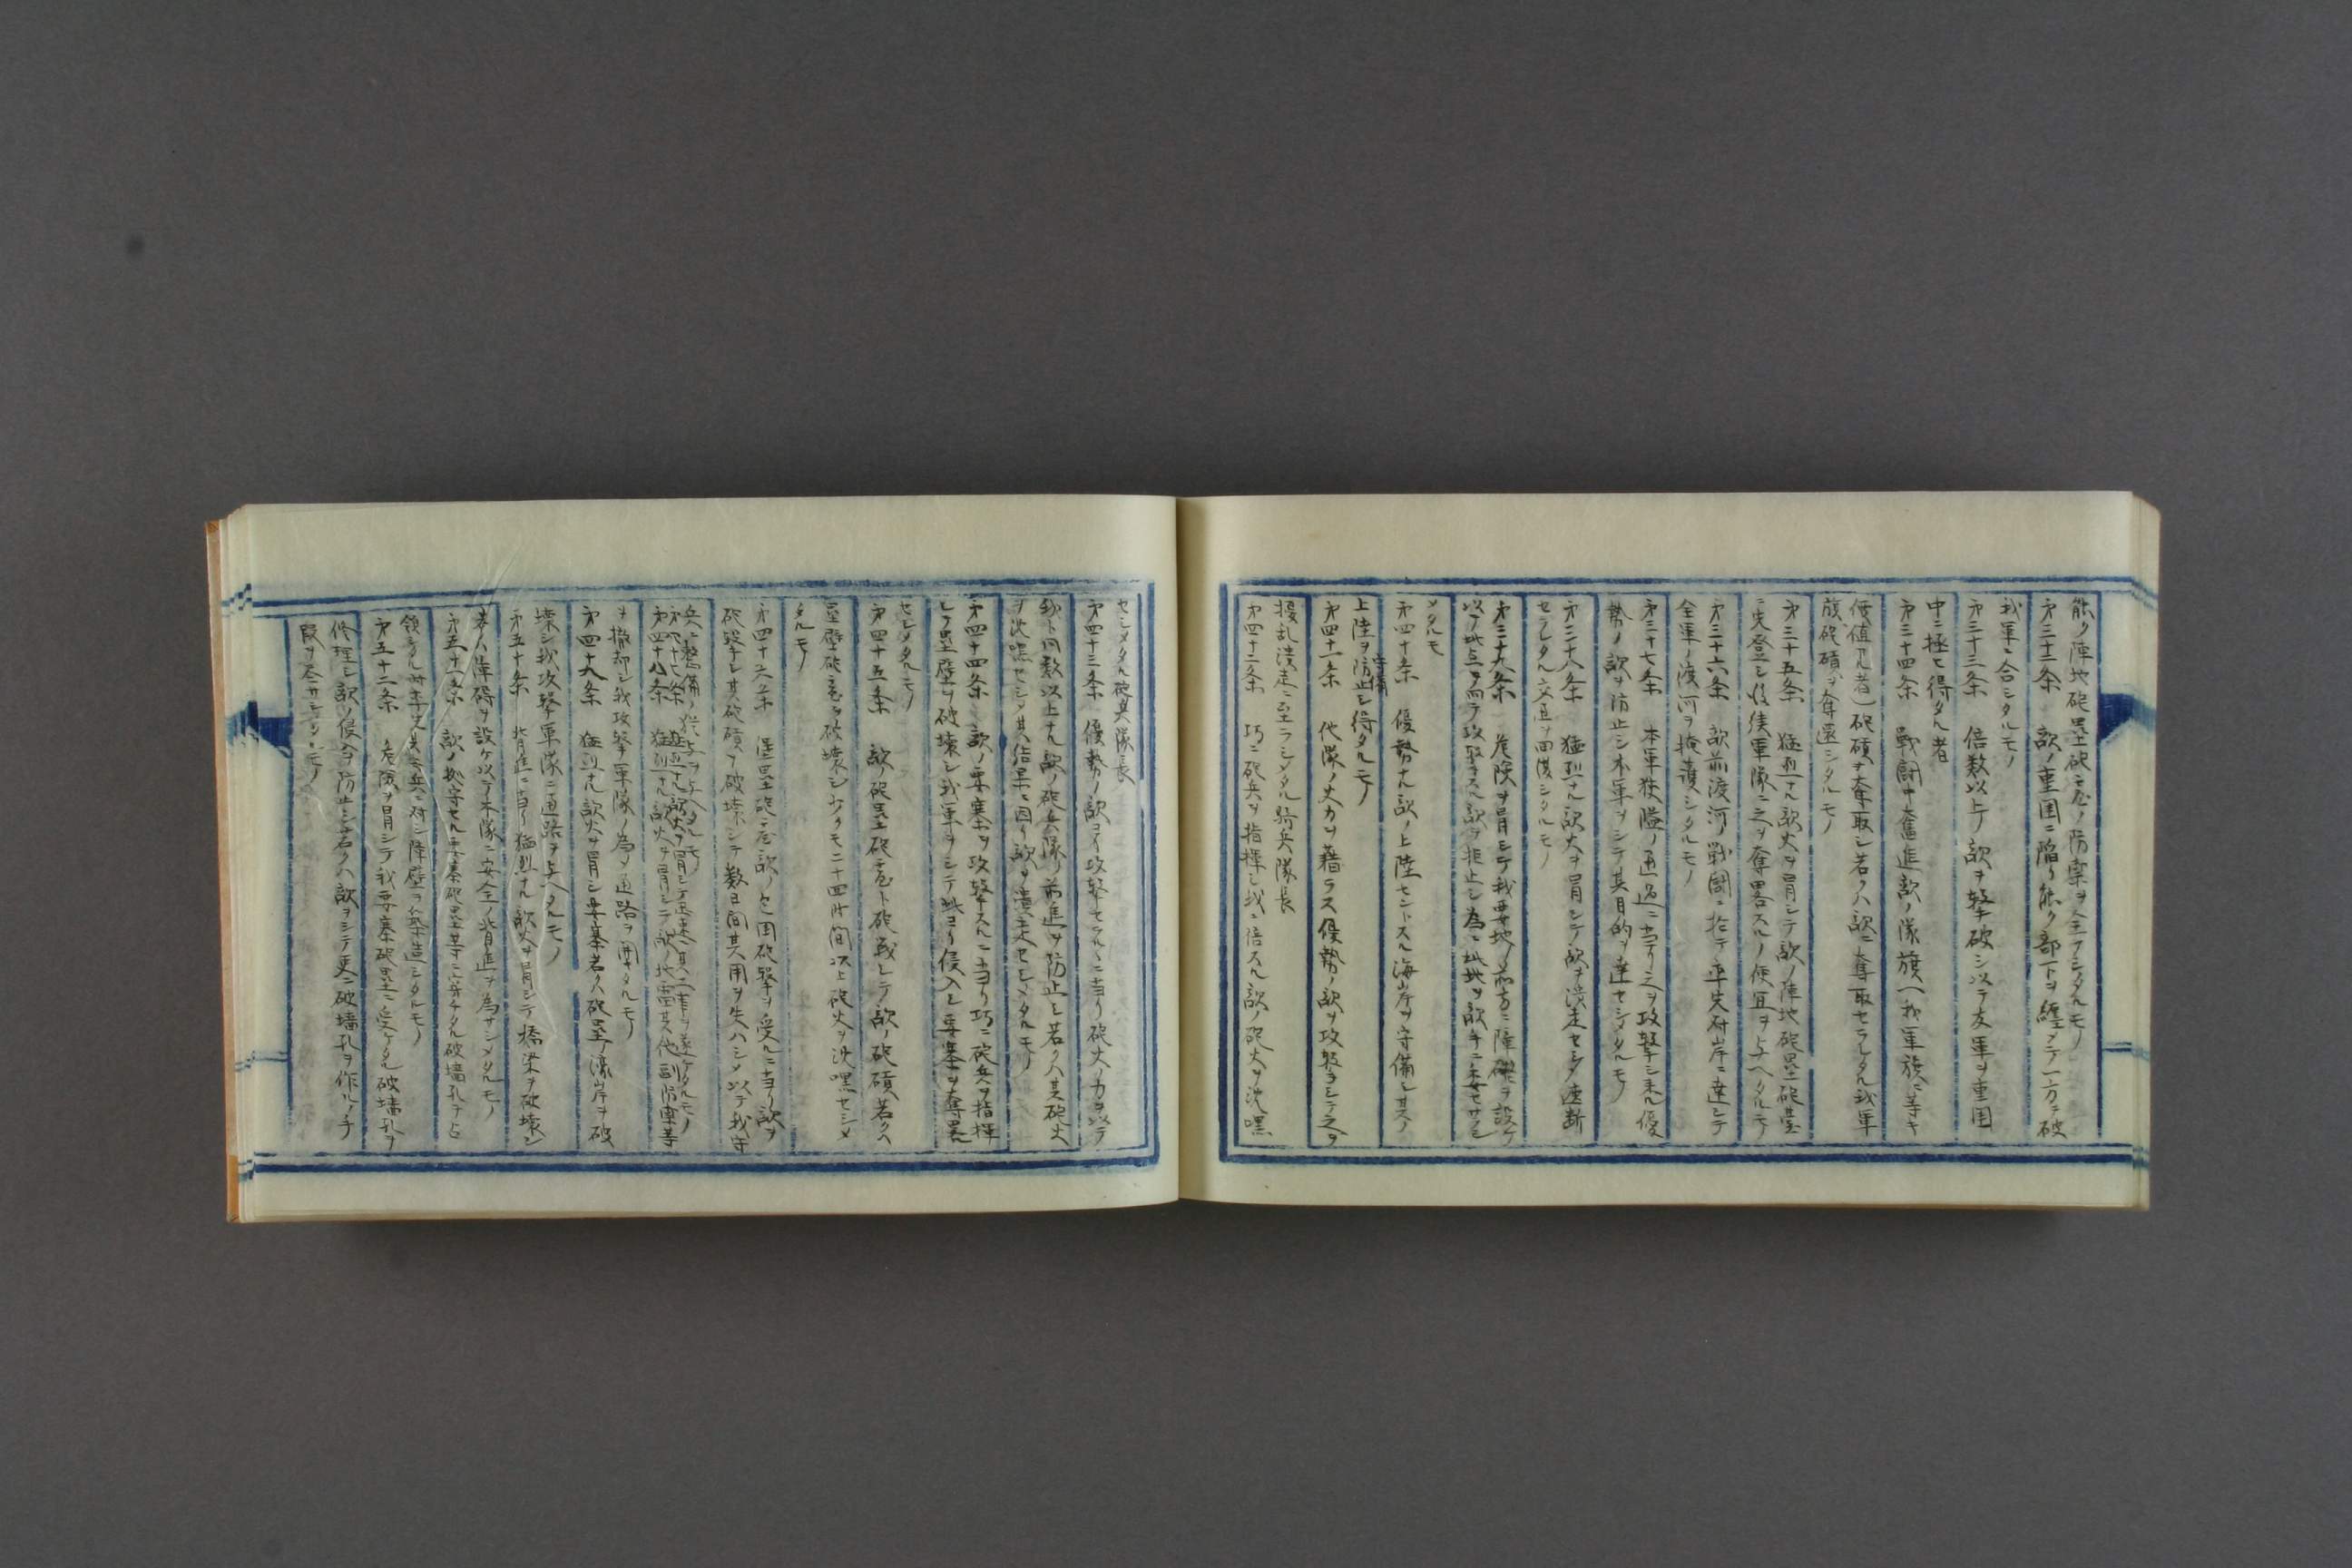 能ク陣地砲塁砲台ノ防禦ヲ全フシタルモノ
才三十二条 敵ノ重囲ニ陥リ能ク部下ヲ纏メテ一方ヲ破
我軍ニ合シタルモノ
才三十三条 倍数以上ノ敵ヲ撃破シ以テ友軍ヲ重囲
中ニ極セ得タル者
才三十四条 戦闘中奮進敵ノ隊旗(我軍旗ニ等キ
価値アル者)砲礟ヲ奪取シ若クハ敵ニ奪取セラレタル我軍
旗砲礟ヲ奪還シタルモノ
才三十五条 猛烈ナル敵火ヲ冒シテ敵ノ陣地砲塁砲台
ニ先登シ後続軍隊ニ之ヲ奪畧スルノ便宜ヲ与ヘタルモノ
才三十六条 敵前渡河ノ戦闘ニ於テ率先対岸ニ達シテ
全軍ノ渡河ヲ掩護シタルモノ
才三十七条 本軍狭隘ノ通過ニ当リ之ヲ攻撃シ来ル優
勢ノ敵ヲ防止シ本軍ヲシテ其目的ヲ達セシメタルモノ
才三十八条 猛烈ナル敵火ヲ冒シテ敵ヲ潰走セシメ遮断
セラレタル交通ヲ回復シタルモノ
才三十九条 危険ヲ冒シテ我要地ノ前方ニ障礙ヲ設ケ
以テ此点ニ向テ攻撃スル敵ヲ拒止シ為ニ此地ヲ敵手ニ委セサラシ
メタルモ
才四十条 優勢ナル敵ノ上陸セントスル海岸ヲ守備シ其ノ
上陸ヲ防止シ得タルモノ
才四十一条 他隊ノ火力ヲ藉ラス優勢ノ敵ヲ攻撃シテ之ヲ
擾乱潰走ニ至ラシメタル騎兵隊長
才四十二条 巧ニ砲兵ヲ指揮シ我ニ倍スル敵ノ砲火ヲ沈黙
セシメタル砲兵隊長
才四十三条 優勢ノ敵ヨリ攻撃セラルヽニ当リ砲火ノ力ヲ以テ
我ト同数以上ナル敵ノ砲兵隊ノ前進ヲ防止シ若クハ其砲火
ヲ沈黙セシメ其結果ニ因リ敵ヲ潰走セシメタルモノ
才四十四条 敵ノ要塞ヲ攻撃スルニ当リ巧ニ砲兵ヲ指揮
シテ塁壁ヲ破壊シ我軍ヲシテ此ヨリ侵入シ要塞ヲ奪畧
セシメタルモノ
才四十五条 敵ノ砲塁砲台ト砲戦シテ敵ノ砲礟若クハ
塁壁砲台ヲ破壊シ少クモ二十四時間以上砲火ヲ沈黙セシメ
タルモノ
才四十六条 堡塁砲台敵ノ包囲砲撃ヲ受ルニ当リ敵ヲ
砲撃シ其砲礟ヲ破壊シテ数日間其用ヲ失ハシメ以テ我守
兵ニ整備ノ猶予ヲ与ヘタルモノ
才四十七条 猛烈ナル敵火ヲ冒シテ迅速ニ其工事ヲ遂ケタルモノ
才四十八条 猛烈ナル敵火ヲ冒シテ敵ノ地雷其他副防禦等
ヲ撤却シ我攻撃軍隊ノ為メ通路ヲ開タルモノ
才四十九条 猛烈ナル敵火ヲ冒シ要塞若クハ砲塁ノ濠岸ヲ破
壊シ我攻撃軍隊ニ通路ヲ与ヘタルモノ
才五十条 背進ニ当リ猛烈ナル敵火ヲ冒シテ橋梁ヲ破壊シ
若クハ障碍ヲ設ケ以テ本隊ニ安全ノ背進ヲ為サシメタルモノ
才五十一条 敵ノ拠守セル要塞砲塁等ニ穿チタル破墻孔ヲ占
領シタル時 守兵ニ対シ障壁ヲ築造シタルモノ
才五十二条 危険ヲ冒シテ我要塞砲塁ニ受ケタル破墻孔ヲ
修理シ敵ノ侵令ヲ防止シ若クハ敵ヲシテ更ニ破墻孔ヲ作ルノ手
段ヲ